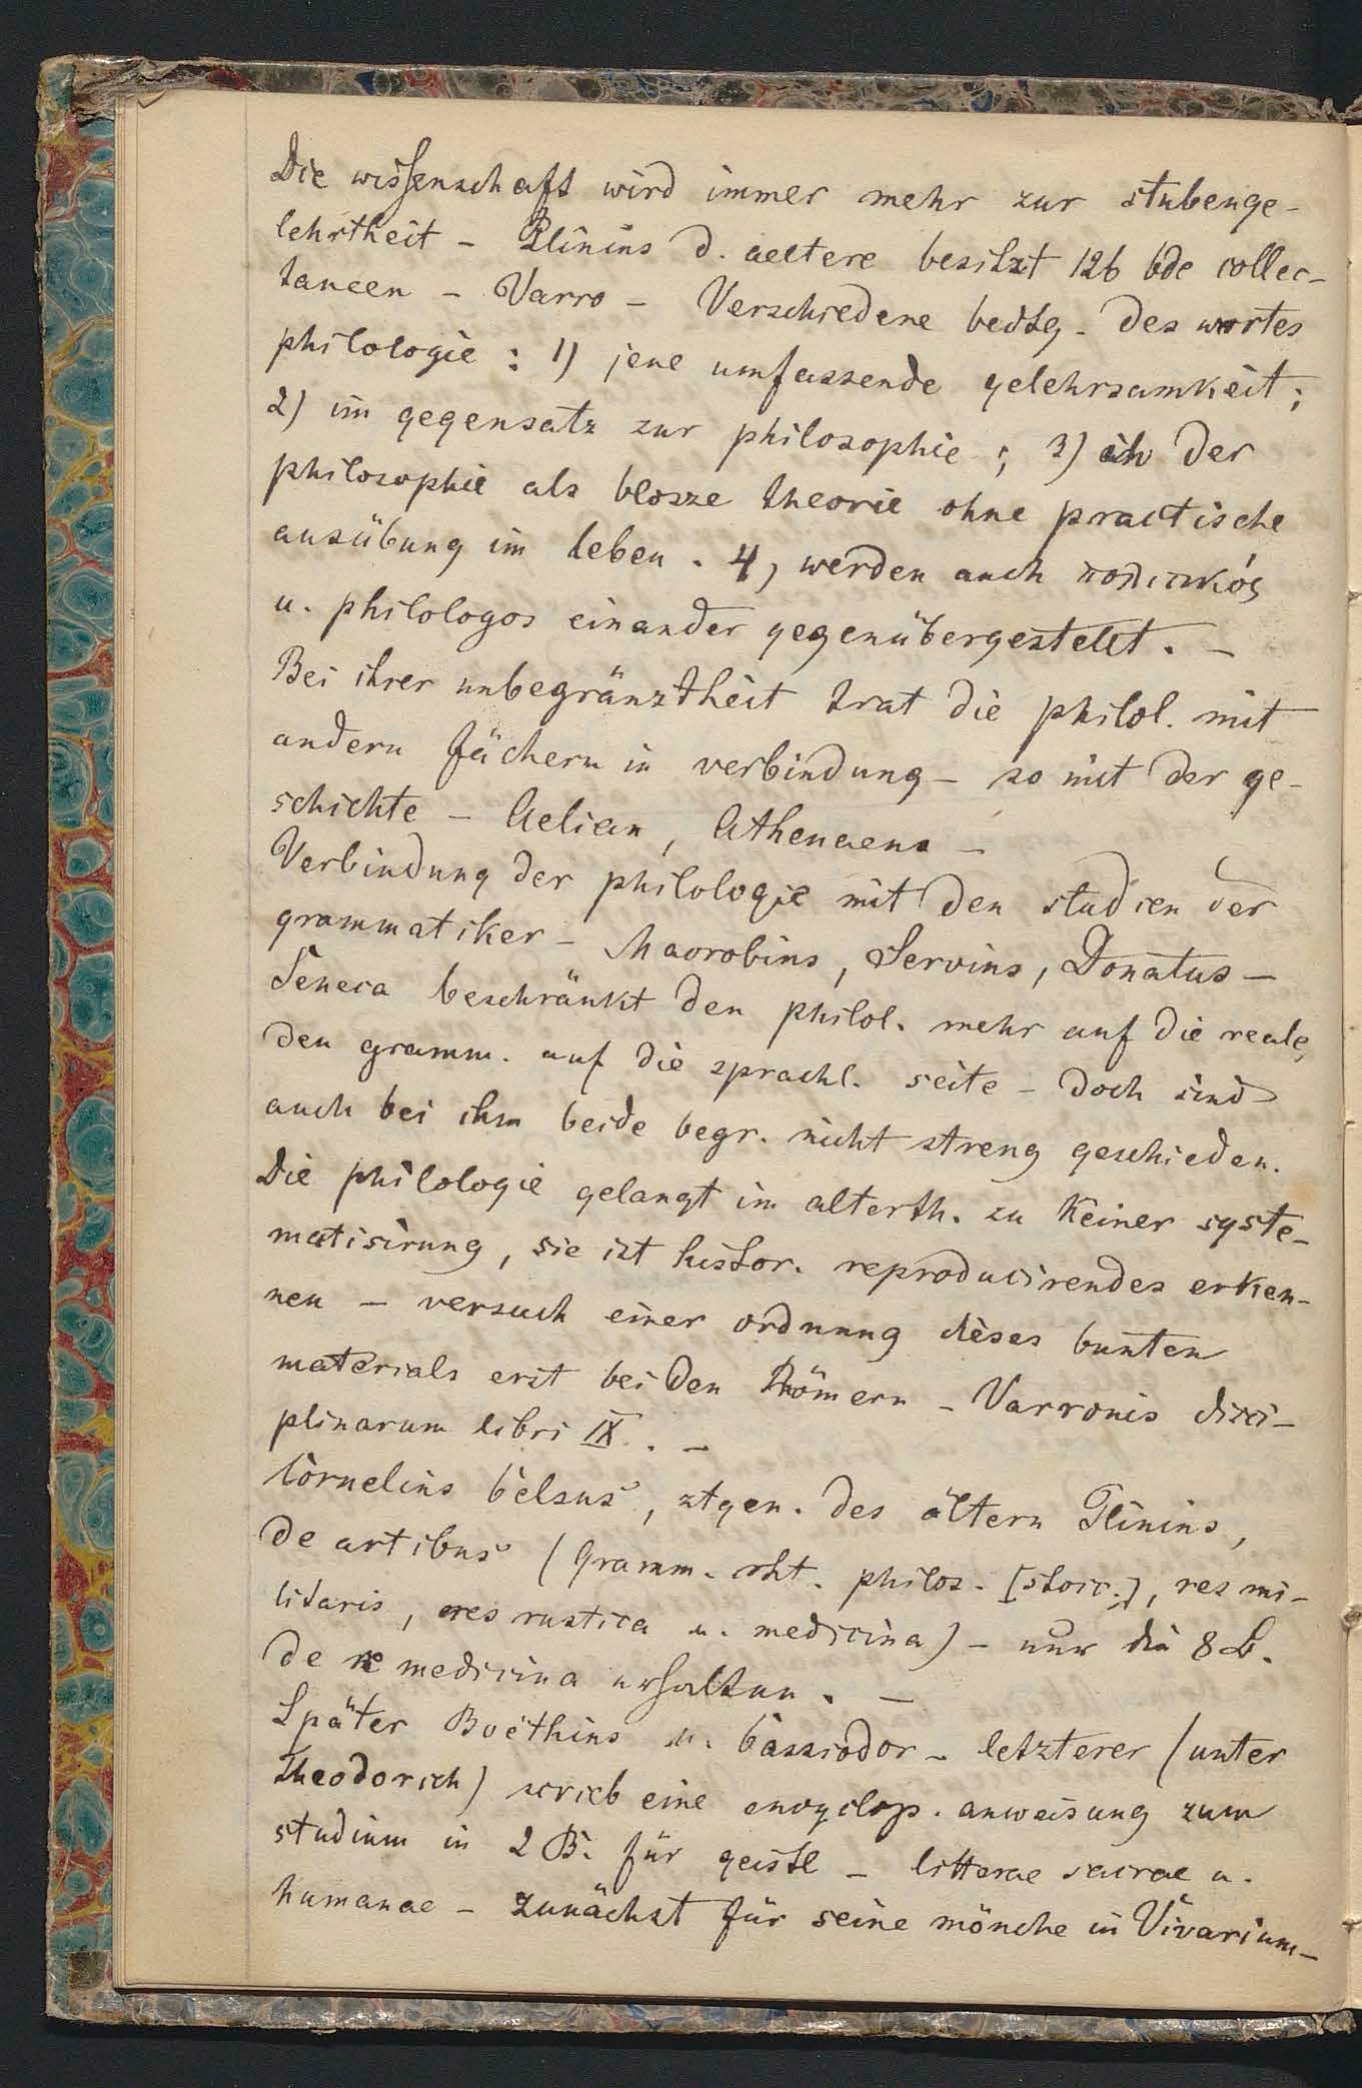 Die wissenschaft wird immer mehr zur stubenge-
lehrtheit - Plinius d. aeltere besitzt 126 bde collec-
taneen - Varro - Verschiedene bedtg. des wortes
philologie : 1) jene umfassende gelehrsamkeit;
2) im gegensatz zur philosophie ; 3) der
philosophie als blosze theorie ohne practische
ausübung im leben . 4) werden auch πολιτικός
u. philologos einander gegenübergestellt . -
Bei ihrer unbegränztheit trat die philol. mit
andern fächern in verbindung - so mit der ge-
schichte - Aelian, Athenaeus -
Verbindung der philologie mit den studien der
grammatiker - Macrobius, Servius, Donatus -
Seneca beschränkt den philol. mehr auf die reale,
den gramm. auf die sprachl. seite - doch sind
auch bei ihm beide begr. nicht streng geschieden.
Die philologie gelangt im alterth. zu keiner syste-
matisirung, sie ist histor. reproducirendes erken-
nen - versuch einer ordnung dieses bunten
materials erst bei den Römern - Varronis disci-
plinarum libri IX . -
Cornelius Celsus, ztgen. des ältern Plinius,
de artibus (gramm. rht. philos. [stoic.], res mi-
litaris, res rustica u. medicina) - nur die 8 B.
de re medicina erhalten . -
Später Boëthius u. Cassiodor - letzterer (unter
Theodorich) scrieb eine encyclop. anweisung zum
studium in 2 B. für geistl - litterae sacrae u.
humanae - zunächst für seine mönche in Vivarium -